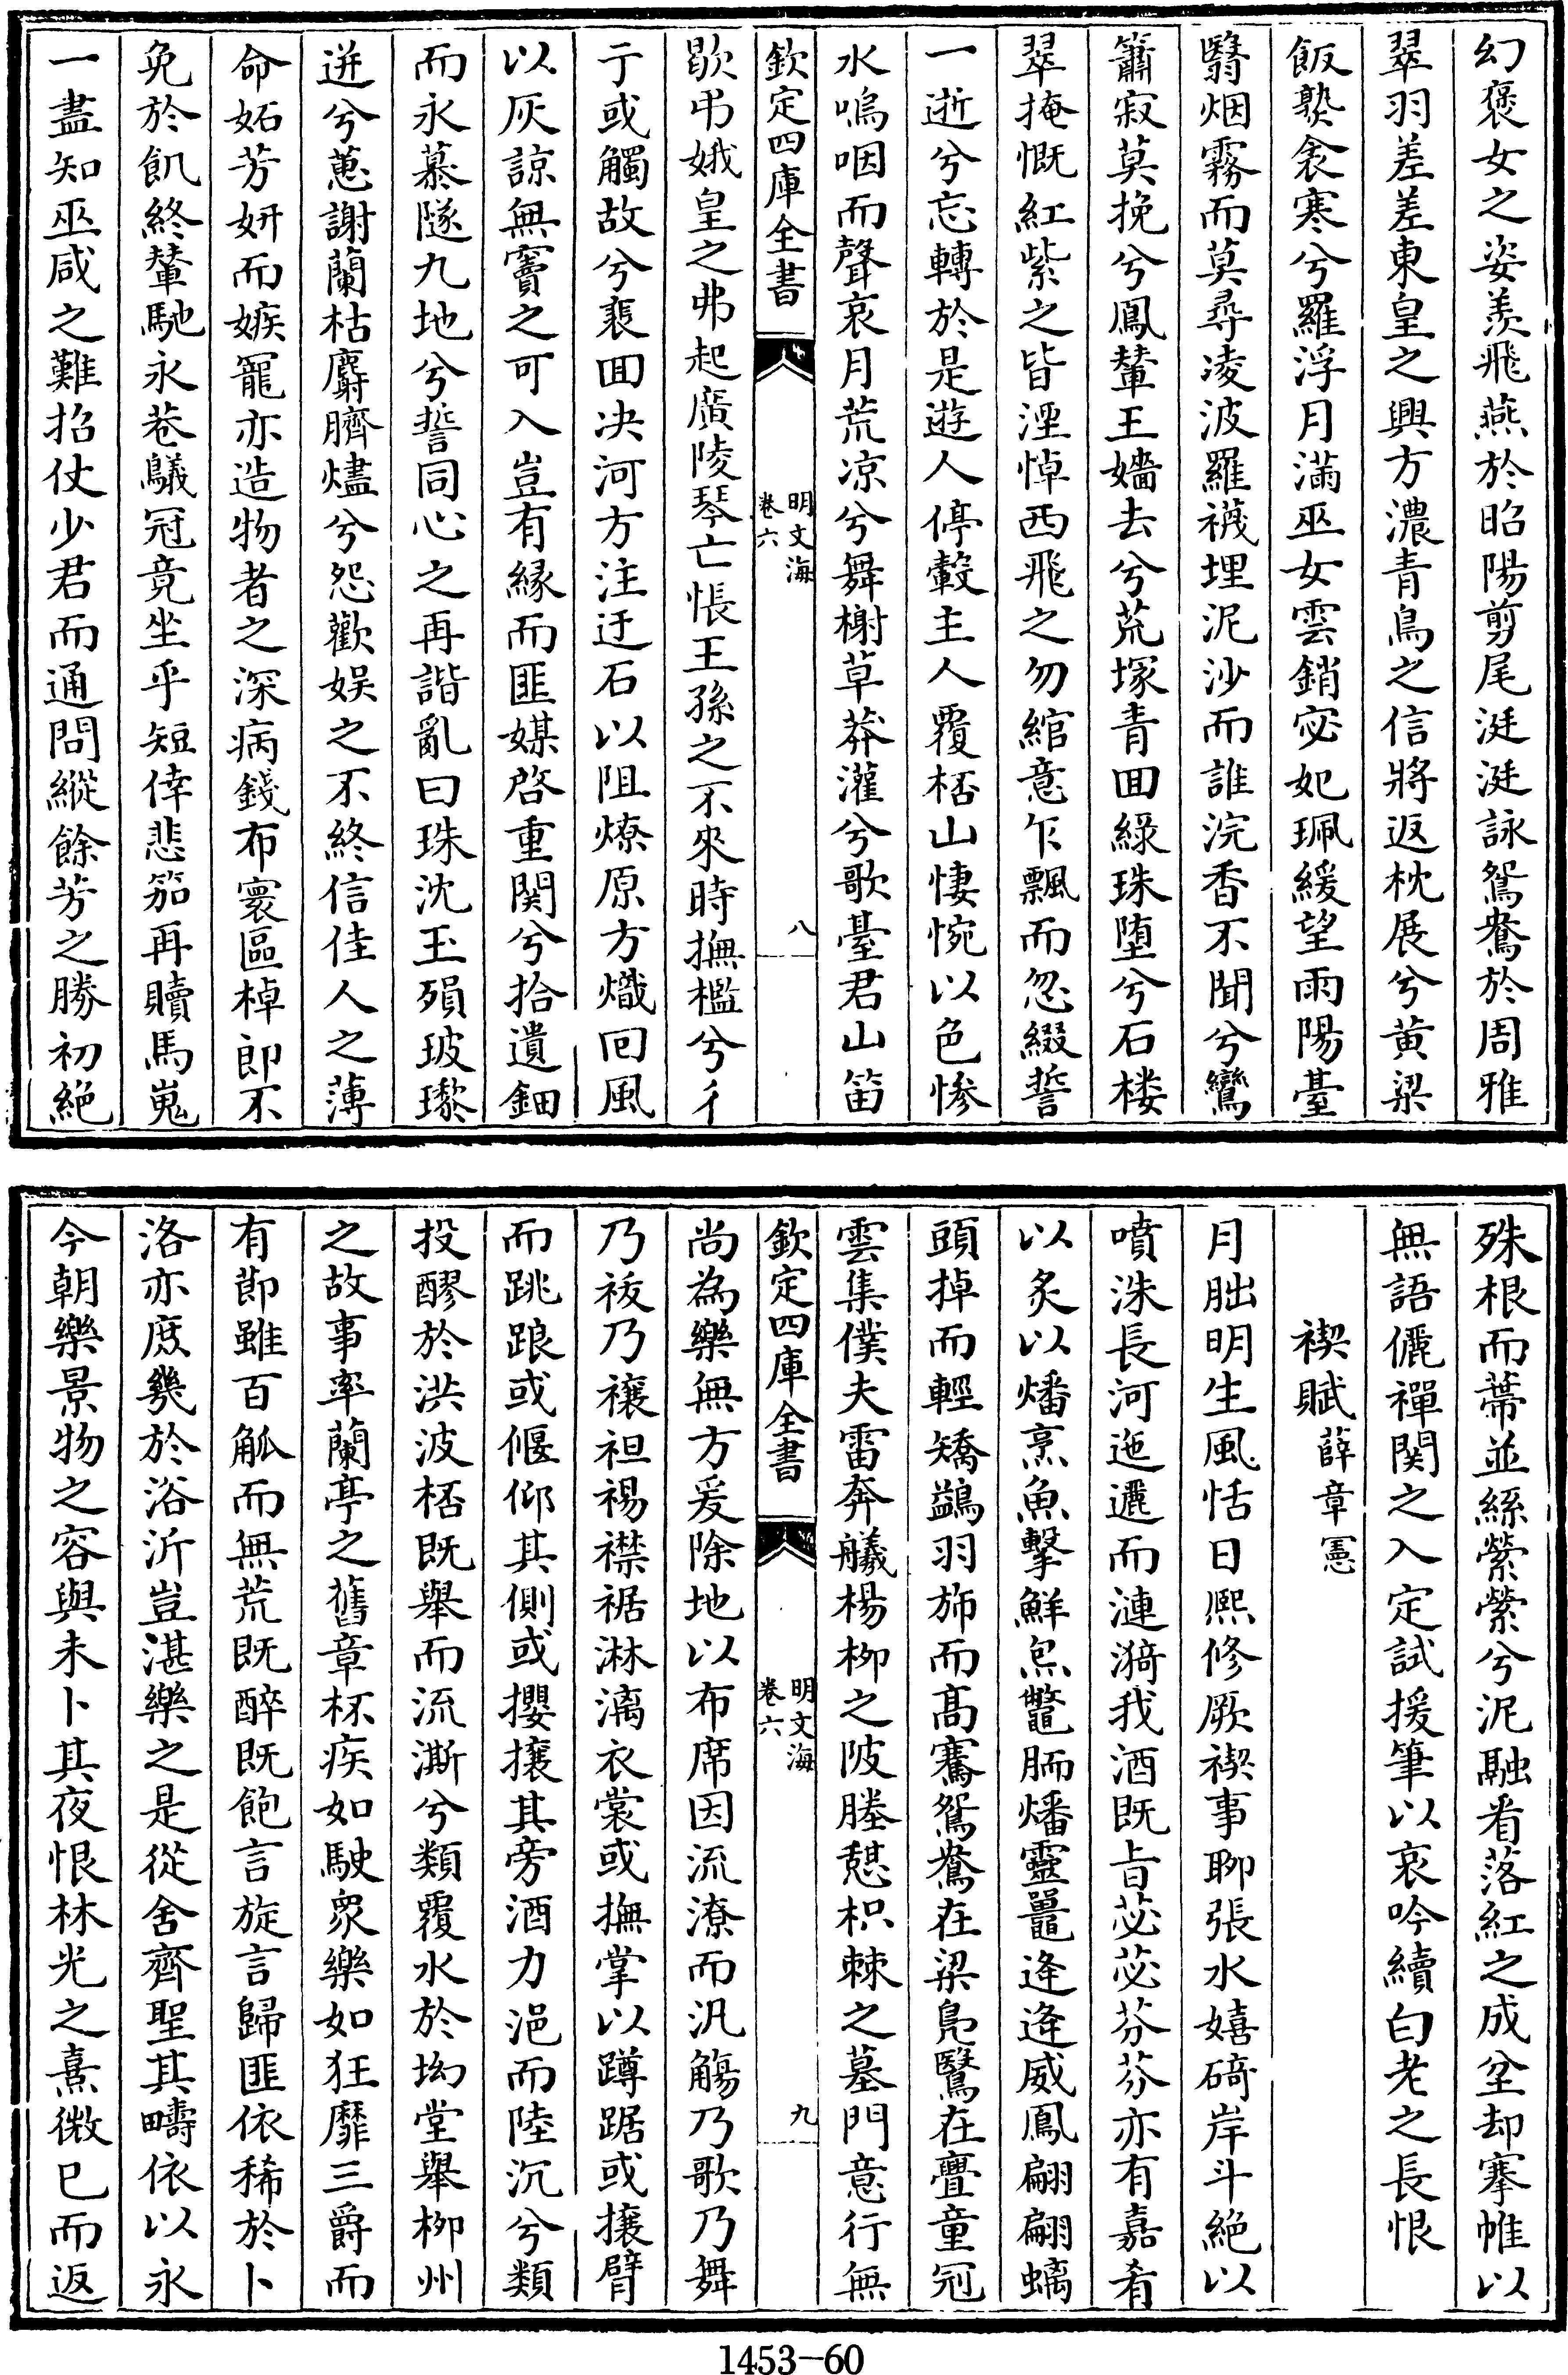 幻褒女之姿羨飛燕於昭陽剪尾涎涎詠鴛鴦於周雅
翠羽差差東皇之興方濃青鳥之信將返枕展兮黄粱
飯熟衾寒兮羅浮月滿巫女雲銷宓妃珮緩望雨陽臺
翳烟霧而莫尋凌波羅襪埋泥沙而誰浣香不聞兮鸞
簫寂莫挽兮鳳輦王嬙去兮荒塚青囬綠珠堕兮石楼
翠掩慨紅紫之皆湮悼西飛之勿綰意乍飄而忽綴誓
一逝兮忘轉於是遊人停轂主人覆桮山悽惋以色惨
水嗚咽而聲哀月荒凉兮舞榭草莽灌兮歌臺君山笛
欽定四庫全書
明文海
卷六
八
歇弔娥皇之弗起廣陵琴亡悵王孫之不來時撫檻兮彳
亍或觸故兮裴囬决河方注迂石以阻燎原方熾囘風
以灰諒無竇之可入豈有緣而匪媒啓重関兮拾遺鈿
而永慕隧九地兮誓同心之再諧亂曰珠沈玉殞玻瓈
迸兮蕙謝蘭枯麝臍燼兮怨歡娱之不終信佳人之薄
命妬芳妍而嫉寵亦造物者之深病錢布寰區棹郎不
免於飢終輦馳永巷驖冠竟坐乎短倖悲笳再贖馬嵬
一盡知巫咸之難招仗少君而通問縱餘芳之勝初絕
殊根而蔕並絲縈縈兮泥融看落紅之成坌却搴帷以
無語儷禪関之入定試援筆以哀吟續白老之長恨
禊賦薛章憲
月朏明生風恬日熙修厥禊事聊張水嬉碕岸斗絕以
噴洙長河迤邐而漣漪我酒既旨苾苾芬芬亦有嘉肴
以炙以燔烹魚擊鮮炰鼈胹燔靈鼉逄逄威鳳翩翩螭
頭掉而輕矯鷁羽斾而高騫鴛鴦在梁鳧鷖在亹童冠
雲集僕夫雷奔艤楊柳之陂塍憇枳棘之墓門意行無
欽定四庫全書
明文海
卷六
九
尚為樂無方爰除地以布席因流潦而汎觴乃歌乃舞
乃祓乃禳袒裼襟裾淋漓衣裳或撫掌以蹲踞或攘臂
而跳踉或偃仰其側或攖攘其旁酒力浥而陸沉兮類
投醪於洪波桮既舉而流澌兮類覆水於坳堂舉柳州
之故事率蘭亭之舊章杯疾如駛衆樂如狂靡三爵而
有莭雖百觚而無荒既醉既飽言旋言歸匪依稀於卜
洛亦庶幾於浴沂豈湛樂之是從舍齊聖其疇依以永
今朝樂景物之容與未卜其夜恨林光之熹微已而返
1453-60